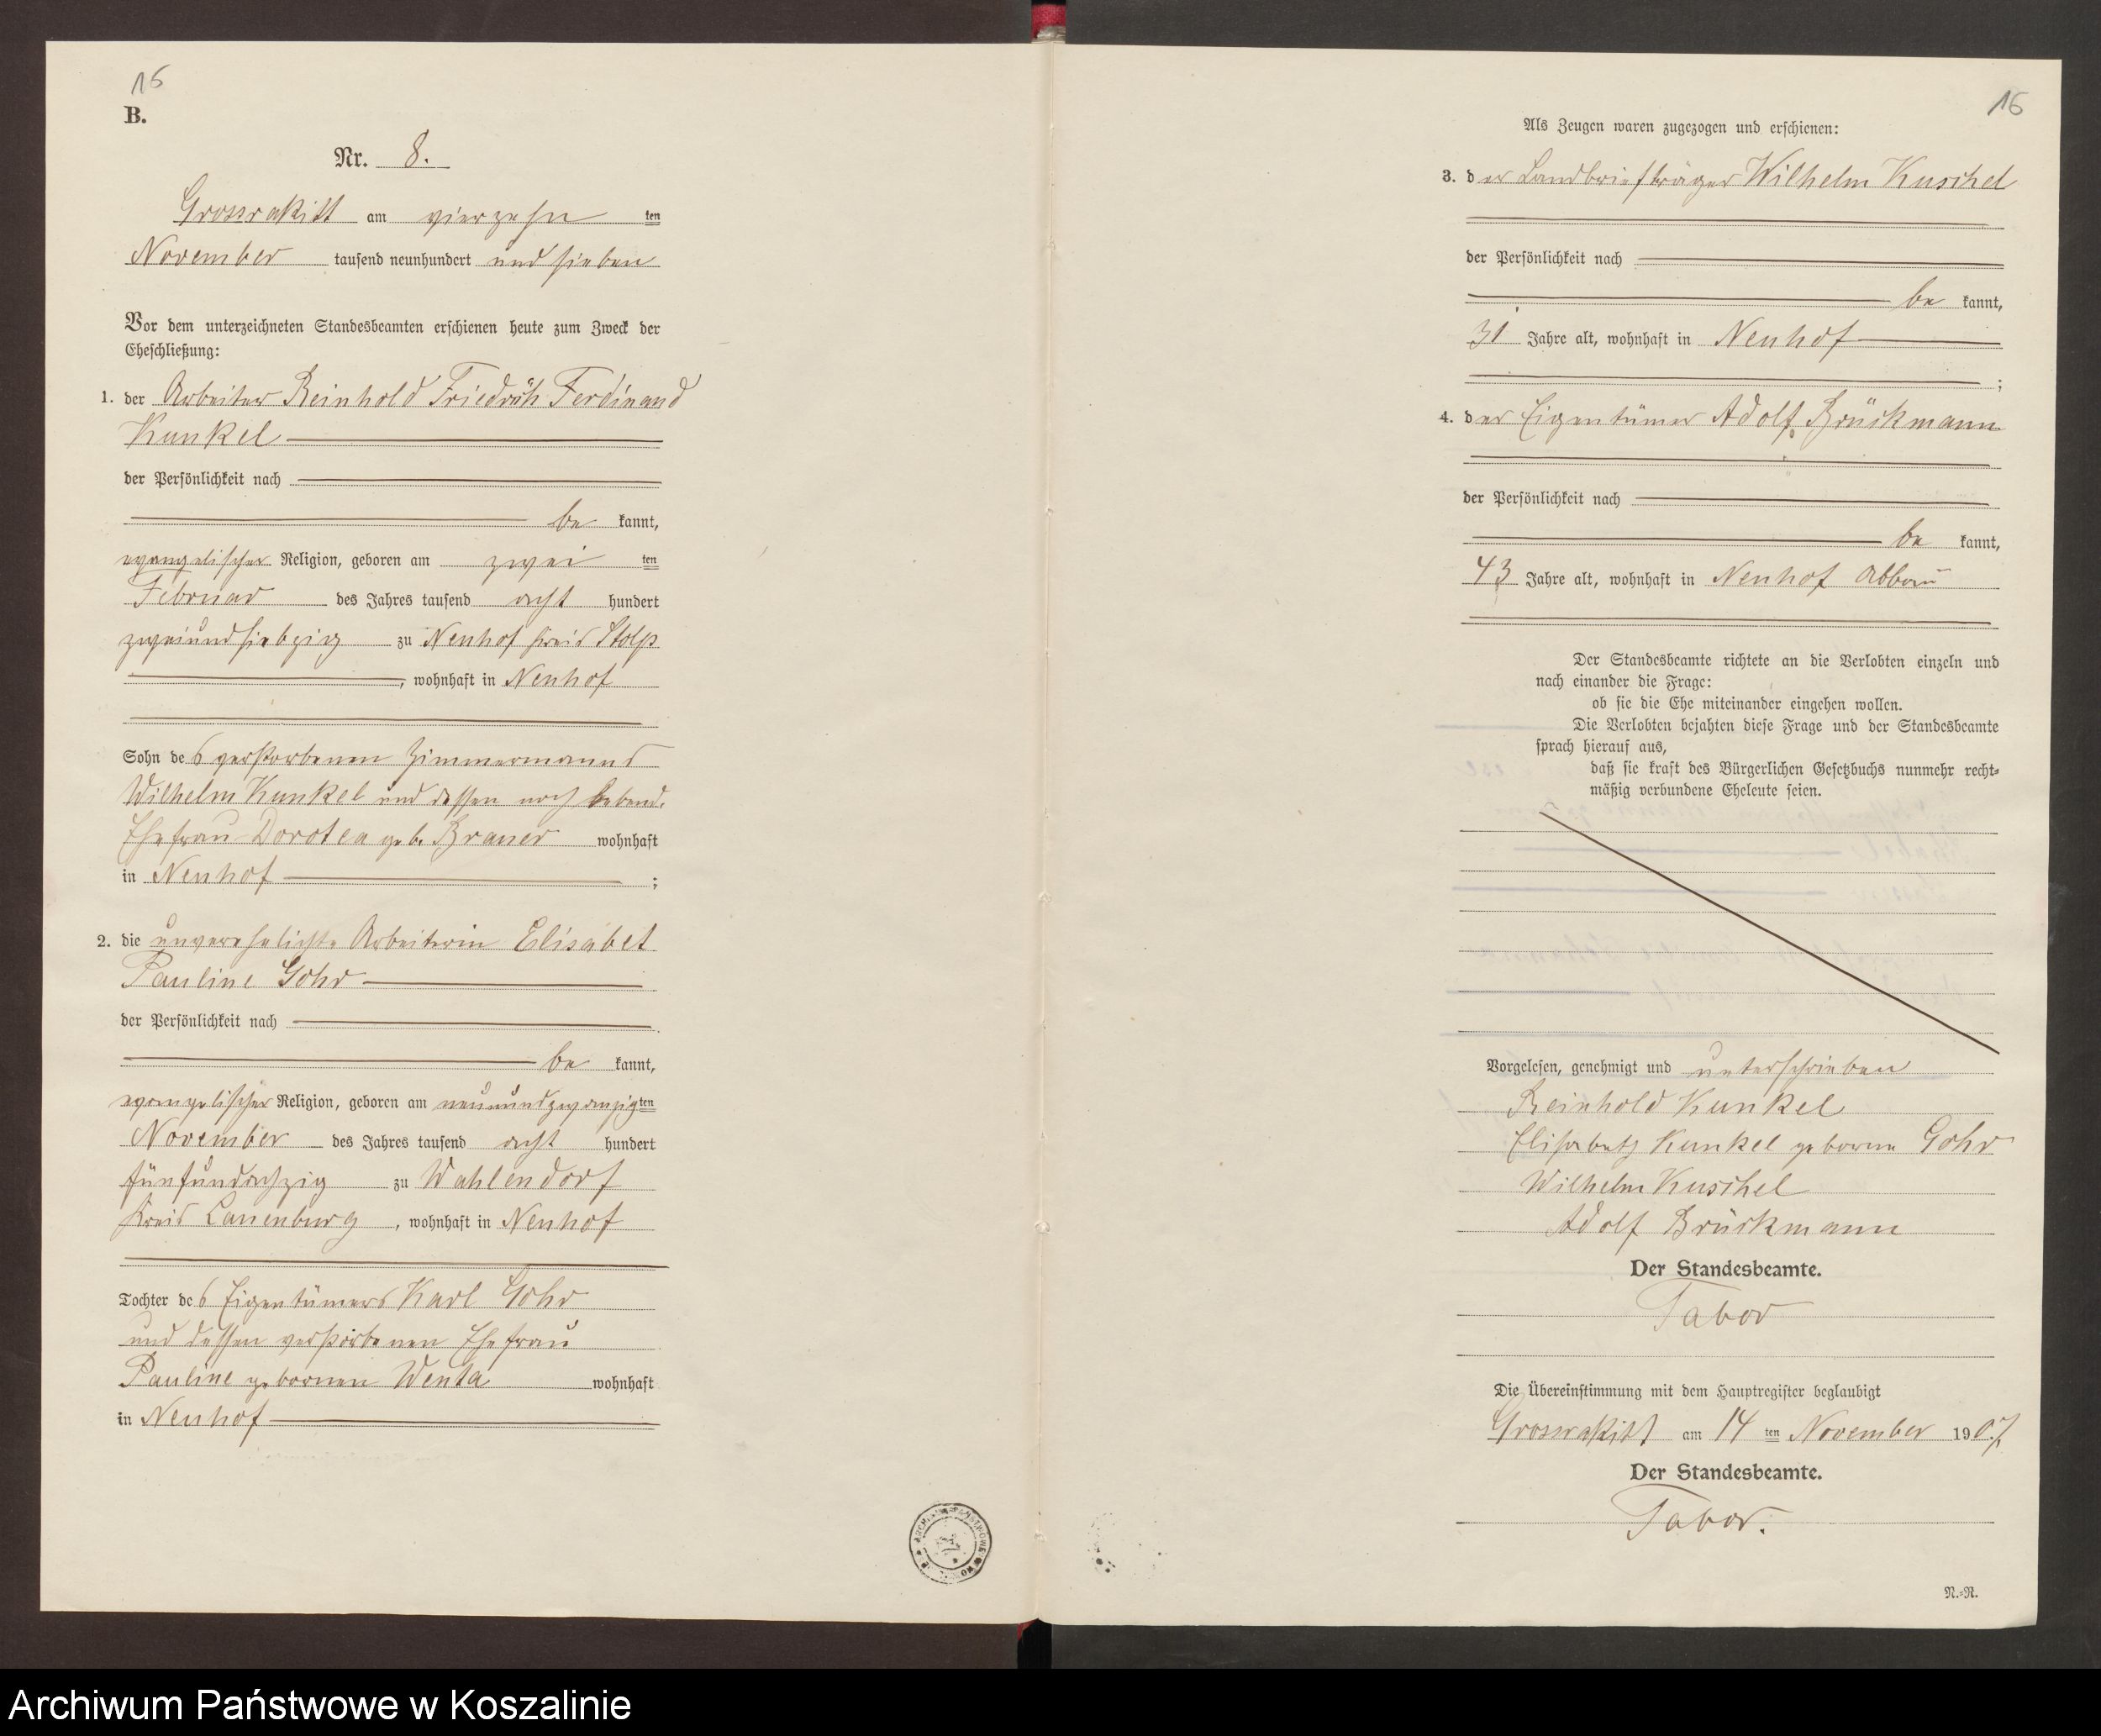 16
B.
Nr. 8.
Grossrakitt am vierzehn ten
November tausend neunhundert und sieben
Vor dem unterzeichneten Standesbeamten erschienen heute zum Zweck der
Eheschließung:
1. der Arbeiter Reinhold Friedrich Ferdinand
Kunkel
der Persönlichkeit nach
be kannt,
evangelischer Religion, geboren am zwei ten
Februar des Jahres tausend acht hundert
zweiundsiebzig zu Neuhof Kreis Stolp
, wohnhaft in Neuhof
Sohn des verstorbenen Zimmermanns
Wilhelm Kunkel und dessen noch lebend.
Ehefrau Dorotea geb. Brauer wohnhaft
in Neuhof ;
2. die unverehelichte Arbeiterin Elisabet
Pauline Gohr
der Persönlichkeit nach
be kannt,
evangelischer Religion, geboren am neunundzwanzig ten
November des Jahres tausend acht hundert
fünfundachzig zu Wahlendorf
Kreis Lauenburg , wohnhaft in Neuhof
Tochter des Eigentümers Karl Gohr
und dessen verstorbenen Ehefrau
Pauline gebornen Wenta wohnhaft
in Neuhof
16
Als Zeugen waren zugezogen und erschienen:
3. der Landbriefträger Wilhelm Kuschel
der Persönlichkeit nach
be kannt,
31 Jahre alt, wohnhaft in Neuhof
;
4. der Eigentümer Adolf Brückmann
der Persönlichkeit nach
be kannt,
43 Jahre alt, wohnhaft in Neuhof Abbau
Der Standesbeamte richtete an die Verlobten einzeln und
nach einander die Frage:
ob sie die Ehe miteinander eingehen wollen.
Die Verlobten bejahten diese Frage und der Standesbeamte
sprach hierauf aus,
daß sie kraft des Bürgerlichen Gesetzbuchs nunmehr recht-
mäßig verbundene Eheleute seien.
Vorgelesen, genehmigt und unterschrieben
Reinhold Kunkel
Elisabeth Kunkel geborne Gohr
Wilhelm Kuschel
Adolf Brückmann
Der Standesbeamte.
Tabor
Die Übereinstimmung mit dem Hauptregister beglaubigt
Grossrakitt am 14 ten November 1907.
Der Standesbeamte.
Tabor.
N.-R.
Archiwum Państwowe w Koszalinie